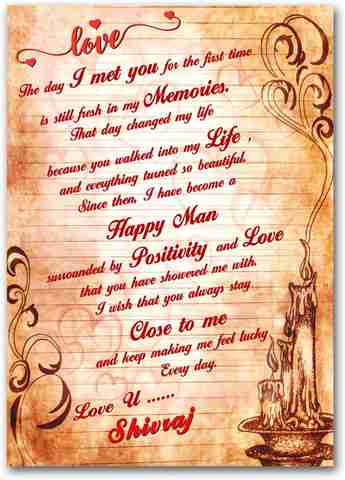 love
The day I met you for the first time
is still fresh in my Memories.
That day changed my life
because you walked into my Life ,
and everything turned so beautiful.
Since then, I have become a
Happy Man
surrounded by Positivity and Love
that you have showered me with.
I wish that you always stay...
Close to me
and keep making me feel lucky
Every day.
Love U ......
Shivraj